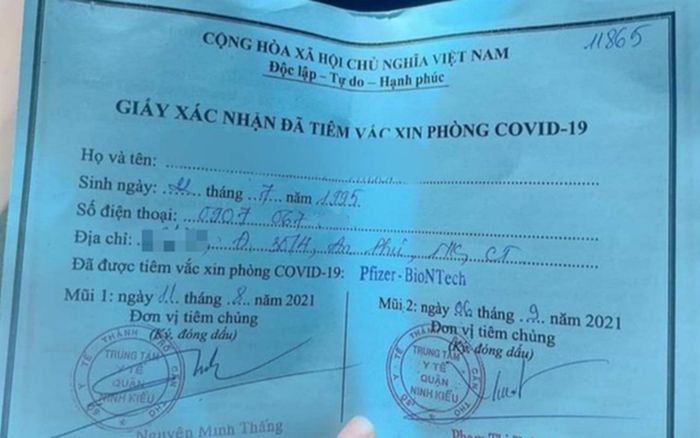 11865
CỘNG HÒA XÃ HỘI CHỦ NGHĨA VIỆT NAM
Độc lập – Tự do – Hạnh phúc
GIẤY XÁC NHẬN ĐÃ TIÊM VẮC XIN PHÒNG COVID-19
Họ và tên:
Sinh ngày: 11 tháng 7 năm 1995
Số điện thoại: 0907 067
Địa chỉ: Đ. 30/4, An Phú, NK, CT
Đã được tiêm vắc xin phòng COVID-19: Pfizer - BioNTech
Mũi 1: ngày 11 tháng 8 năm 2021
Đơn vị tiêm chủng
(Ký, đóng dấu)
SỞ Y TẾ THÀNH PHỐ CẦN THƠ
TRUNG TÂM
Y TẾ
QUẬN
NINH KIỀU
Nguyễn Minh Thắng
Mũi 2: ngày 06 tháng 9 năm 2021
Đơn vị tiêm chủng
(Ký, đóng dấu)
SỞ Y TẾ THÀNH PHỐ CẦN THƠ
TRUNG TÂM
Y TẾ
QUẬN
NINH KIỀU